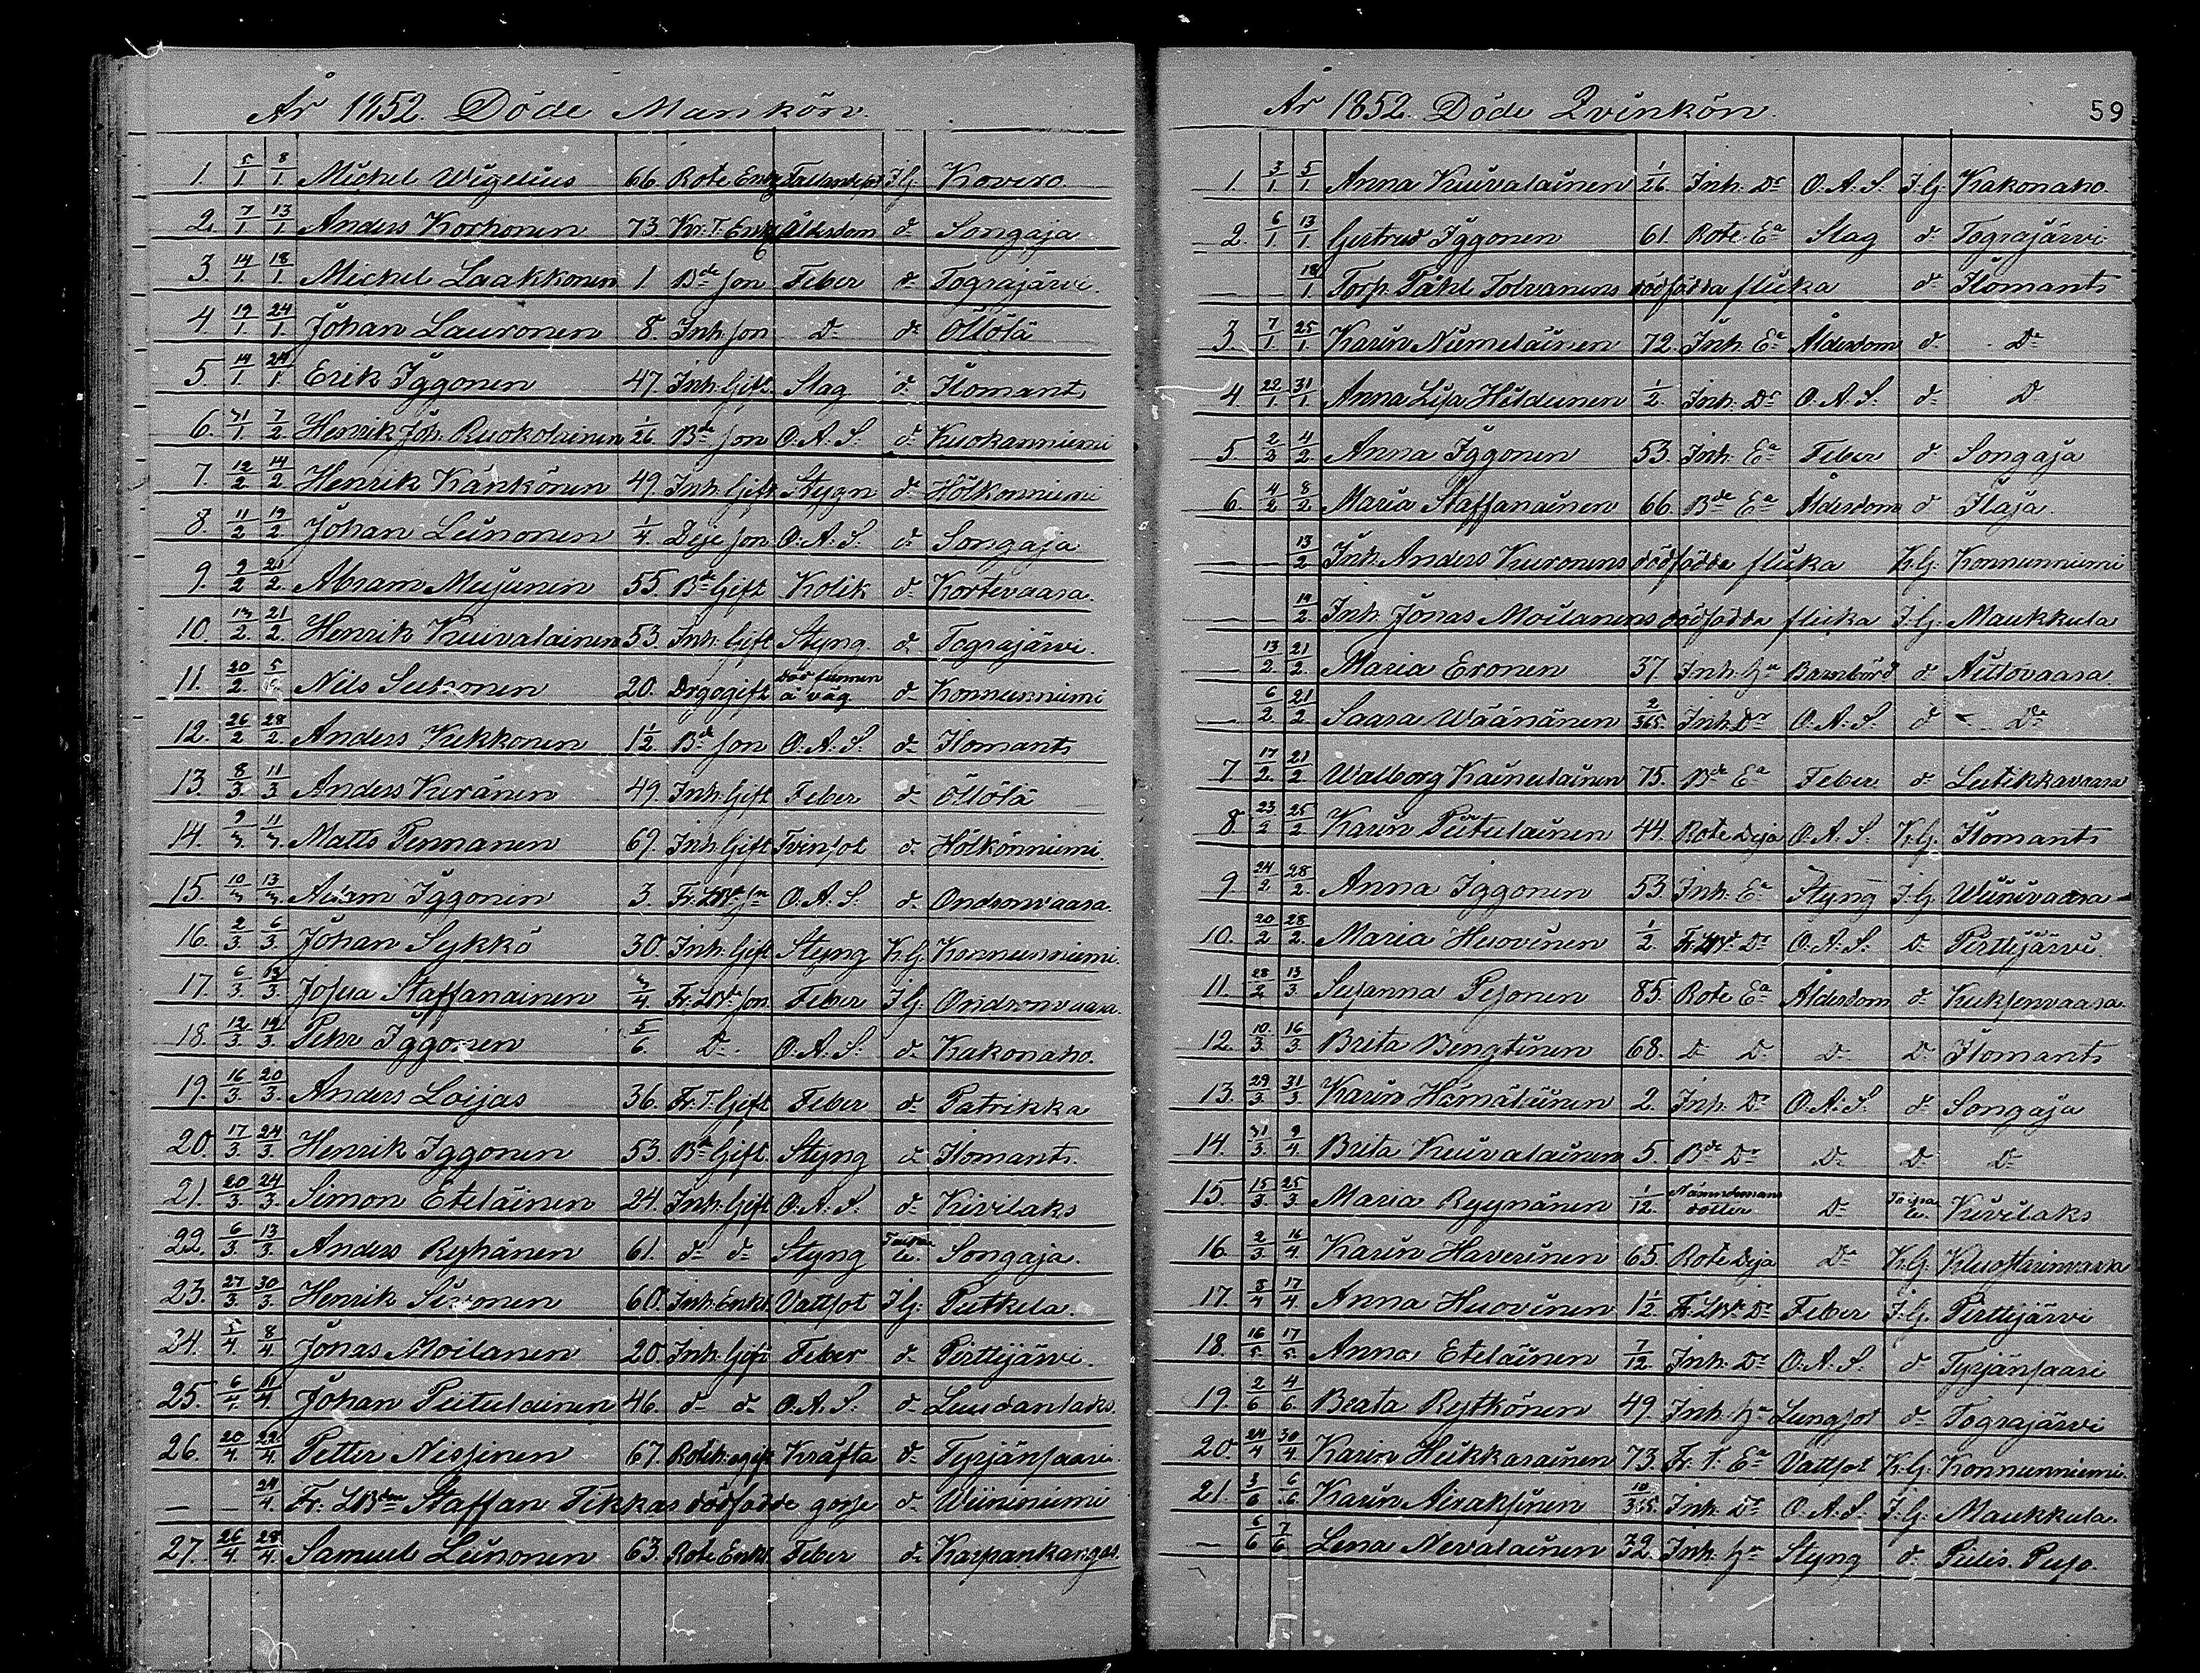 År 1852. Döde Mankön.
1. 5/1 8/1 Michel Wigelius 66. Rote Enkl. Fallandesot I.G. Kovero
2. 7/1 13/1 Anders Korhonen 73. Kr. T. Enkl. Ålderdom d:o Songaja
3. 14/1 18/1 Michel Laakkonen 1 B:de son Feber d:o Tograjärvi.
4 19/1 24/1 Johan Lauronen 8. Inh. son D:o d:o Ollola
5. 14/1 24/1 Erik Iggonen 47. Inh. Gift Slag d:o Ilomants
6. 31/1 7/2 Henrik Joh. Ruokolainen 1/26 B:de son O.A.S. d:o Kuokanniemi
7. 12/2 14/2 Henrik Känkönen 49. Inh. Gift Stygn d:o Hölkönniemi
8. 11/2 19/2 Johan Leinonen 1/4 Deje son O.A.S. d:o Songaja
9. 9/2 21/2 Abram Mujunen 55. B:de Gift Kolik d:o Kortevaara.
10. 13/2 21/2 Henrik Kuivalainen 53. Inh. Gift Styng d:o Tograjärvi.
11. 20/2 5/3 Nils Sutonen 20. Drg ogift å väg d:o Konnunniemi
12. 26/2 28/2 Anders Kukkonen 1 1/2 B:de son O.A.S. d:o Ilomants
13. 8/3 11/3 Anders Kuränen 49. Inh. Gift Feber d:o Ollola
14. 9/3 11/3 Matts Pennanen 69. Inh. Gift Tvinsot d:o Hölkönniemi.
15. 10/3 13/3 Adam Iggonen 3. Fr. LB:de son O.A.S. d:o Ondronvaara.
16. 2/3 6/3 Johan Sykkö 30. Inh. Gift Styng K.G. Konnunniemi.
17. 6/3 13/3 Josua Staffanainen 3/4 Fr. LB:de son Feber I.G. Ondronvaara.
18. 12/3 14/3 Pehr Iggonen 5/6. D:o O.A.S. d:o Kakonaho.
19. 16/3 20/3 Anders Loijas 36. Fr. T. Gift Feber d:o Patrikka
20. 17/3 24/3 Henrik Iggonen 53. B:de Gift. Styng d:o Ilomants.
21. 20/3 24/3 Simon Eteläinen 24. Inh. Gift O.A.S. d:o Kivilaks
22. 6/3 13/3 Anders Ryhänen 61. d:o d:o Styng Songaja.
23. 27/3 30/3 Henrik Sivonen 60. Inh. Enkl. Vattsot I.G. Putkela.
24. 5/4 8/4 Jonas Moilanen 20. Inh. Gift Feber d:o Pirttijärvi.
25. 6/4 11/4 Johan Piitulainen 46. d:o d:o O.A.S. d:o Luudanlaks.
26. 20/4 22/4 Petter Nissinen 67. Roteh. ogift Kräfta d:o Tyrjänsaari.
— — 24/4 Fr. LB:den Staffan Tikkas dödfödde gosse d:o Wiininiemi
27. 26/4 28/4 Samuel Leinonen 63. Rote Enkl. Feber d:o Karpankangas.
År 1852. Döde Qvinkön.
59
1. 3/1 5/1 Anna Kuivalainen 1/26 Inh. D:r O.A.S. I.G. Kakonaho
2. 6/1 13/1 Gertrud Iggonen 61. Rote E:a Slag d:o Tograjärvi
— — 18/1 Torp. Påhl Tolvanens dödfödda flicka d:o Ilomants
3. 7/1 25/1 Karin Nümeläinen 72. Inh. E:a Ålderdom d:o D:o
4. 22/1 31/1 Anna Lisa Hildunen 1/2. Inh. D:r O.A.S. d:o D:o
5 2/2 4/2 Anna Iggonen 53. Inh. E:a Feber d:o Songaja
6. 4/2 8/2 Maria Staffanainen 66. B:de E:a Ålderdom d:o Ilaja.
— — 13/2 Inh. Anders Kuronens dödfödde flicka K.G. Konnunniemi
— — 19/2 Inh. Jonas Moilanens dödfödda flicka I.G. Maukkula
13/2 21/2 Maria Eronen 37. Inh. h:u Barnbörd d:o Aittovaara
— 6/2 21/2 Saara Wäänänen 2/365. Inh. D:r O.A.S. d:o D:o
7 17/2 21/2 Walborg Kainulainen 75. B:de E:a Feber d:o Lutikkavaara
8 23/2 25/2 Karin Piitulainen 44. Rote Deja O.A.S. K.G. Ilomants
9 24/2 28/2 Anna Iggonen 53. Inh. E:a Styng I.G. Wiinivaara
10. 20/2 28/2 Maria Huovinen 1/2. Fr. LB:de D:r O.A.S. D:o Pirttijärvi.
11. 28/2 13/3 Susanna Pesonen 85. Rote E:a Ålderdom d:o Kuksenvaara
12. 10/3 16/3 Brita Bengtinen 68. D:o D:o D:o D:o Ilomants
13. 29/3 31/3 Karin Hämäläinen 2. Inh. D:r O.A.S. d:o Songaja
14. 31/3 9/4 Brita Kuivalainen 5. B:de D:r D:o D:o D:o
15 15/3 25/3 Maria Ryynänen 1/12. Nämndemans dotter D:o Kivilaks
16. 2/3 16/4 Karin Haverinen 65. Rote Deja D:o K.G. Kuosturinvaara
17. 8/4 17/4 Anna Huovinen 1 1/2 Fr. LB:de D:r Feber I.G. Pirttijärvi
18. 16/5 17/5 Anna Eteläinen 7/12 Inh. D:r O.A.S. d:o Tyrjänsaari
19. 2/6 4/6 Beata Rytkönen 49. Inh. h:u Lungsot d:o Tograjärvi
20. 24/4 30/4 Karin Heikkarainen 73. Fr. T. E:a Vattsot K.G. Konnunniemi.
21. 3/6 6/6 Karin Airaksinen 10/365 Inh. D:r O.A.S. I.G. Maukkula.
— 6/6 7/6 Lena Nevalainen 32. Inh. h:u Styng d:o Pielis. Puso.